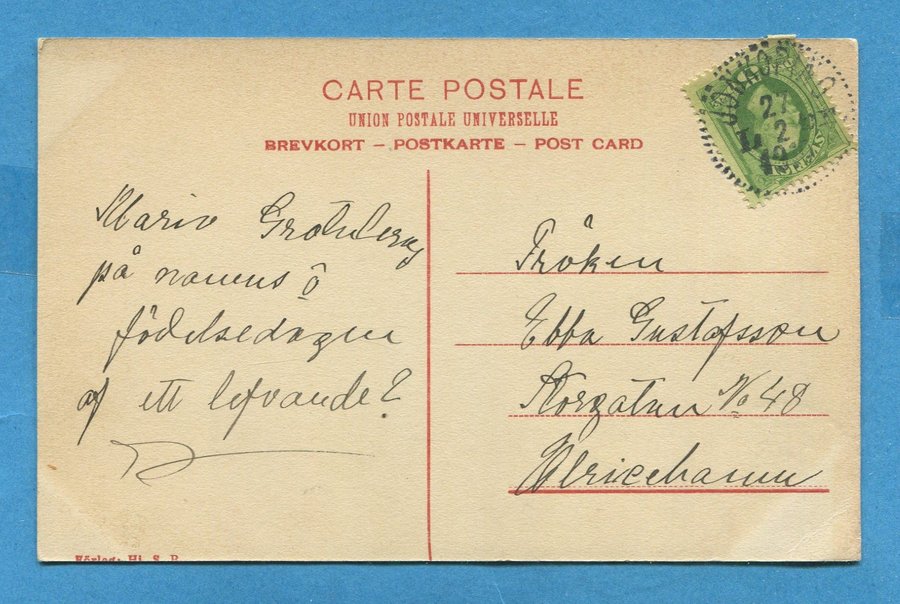 CARTE POSTALE
UNION POSTALE UNIVERSELLE
BREVKORT – POSTKARTE – POST CARD
JÖNKÖPING
27
2
på
födelsedagen
af ett lefvande?
Fröken
Ebba Gustafsson
Storgatan No 48
Ulricehamn
Förlag: